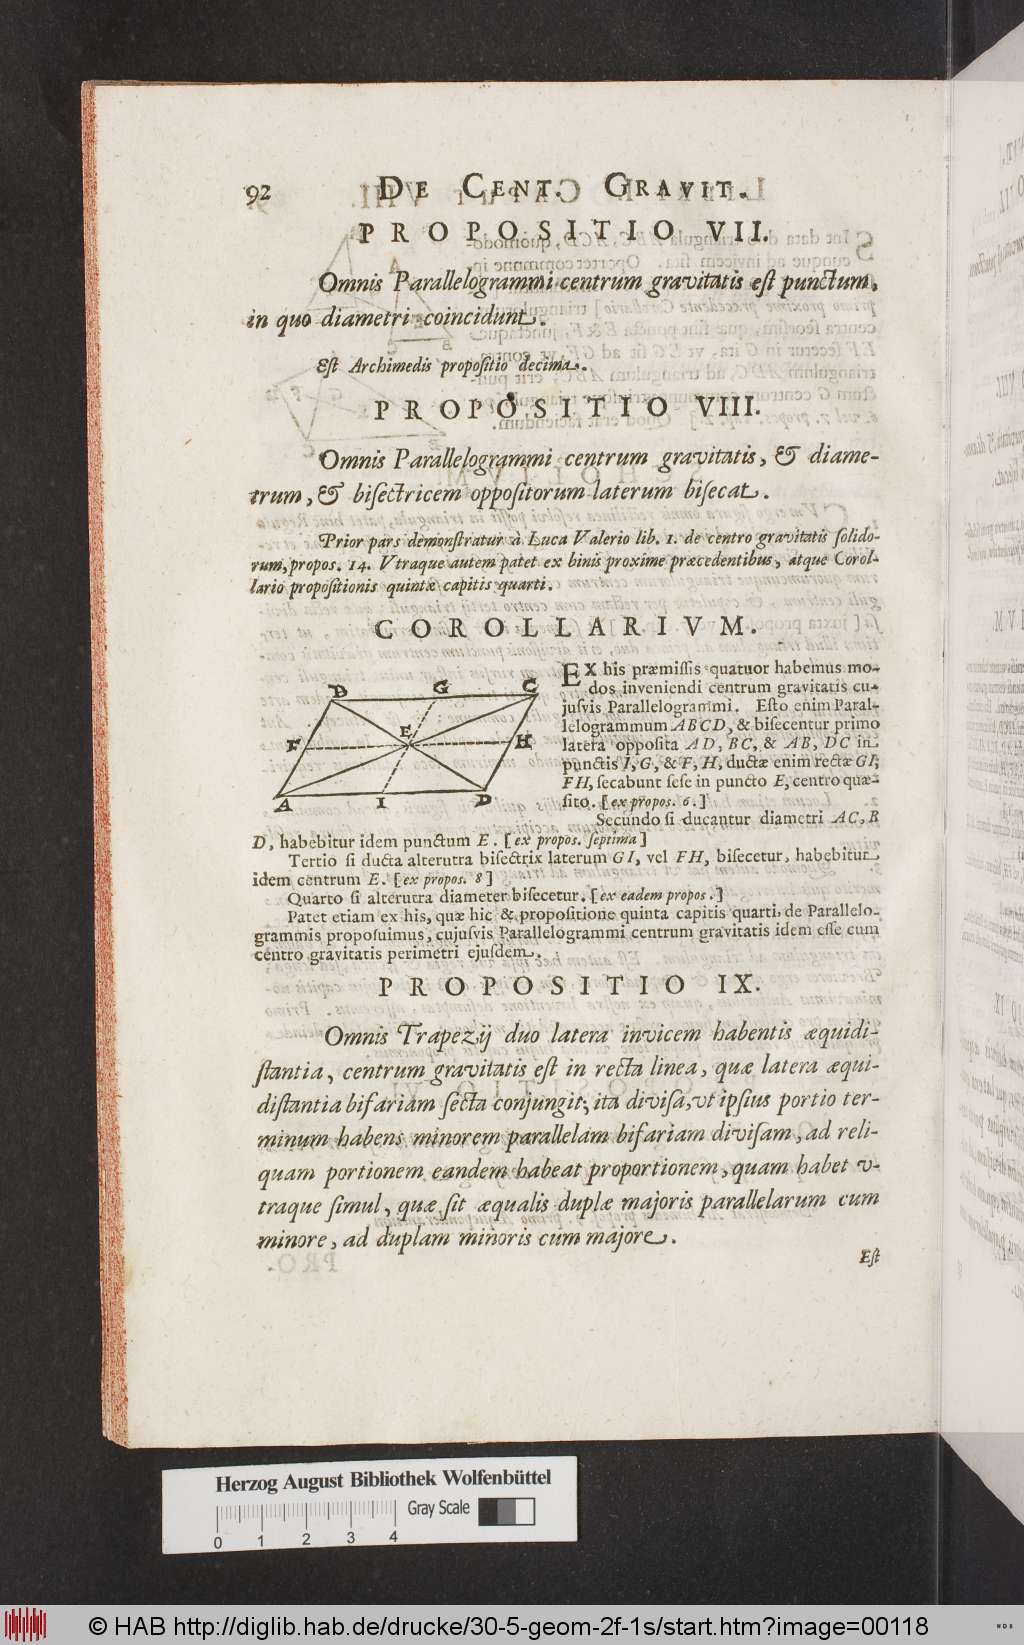 92 DE CENT. GRAVIT.
PROPOSITIO VII.
Omnis Parallelogrammi centrum gravitatis est punctum,
in quo diametri coincidunt.
Est Archimedis propositio decima.
PROPOSITIO VIII.
Omnis Parallelogrammi centrum gravitatis, & diame-
trum, & bisectricem oppositorum laterum bisecat.
Prior pars demonstratur à Luca Valerio lib. 1. de centro gravitatis solido-
rum, propos. 14. Vtraque autem patet ex binis proxime præcedentibus, atque Corol-
lario propositionis quintæ capitis quarti.
COROLLARIVM.
B G C
F E H
A I D
EX his præmissis quatuor habemus mo-
dos inveniendi centrum gravitatis cu-
jusvis Parallelogrammi. Esto enim Paral-
lelogrammum ABCD, & bisecentur primo
latera opposita AD, BC, & AB, DC in
punctis I, G, & F, H, ductæ enim rectæ GI,
FH, secabunt sese in puncto E, centro quæ-
sito. [ex propos. 6.]
Secundo si ducantur diametri AC, B
D, habebitur idem punctum E. [ex propos. septima]
Tertio si ducta alterutra bisectrix laterum GI, vel FH, bisecetur, habebitur
idem centrum E. [ex propos. 8]
Quarto si alterutra diameter bisecetur. [ex eadem propos.]
Patet etiam ex his, quæ hic & propositione quinta capitis quarti, de Parallelo-
grammis proposuimus, cujusvis Parallelogrammi centrum gravitatis idem esse cum
centro gravitatis perimetri ejusdem.
PROPOSITIO IX.
Omnis Trapezij duo latera invicem habentis æquidi-
stantia, centrum gravitatis est in recta linea, quæ latera æqui-
distantia bifariam secta conjungit; ita divisa, vt ipsius portio ter-
minum habens minorem parallelam bifariam divisam, ad reli-
quam portionem eandem habeat proportionem, quam habet v-
traque simul, quæ sit æqualis duplæ majoris parallelarum cum
minore, ad duplam minoris cum majore.
Est
Herzog August Bibliothek Wolfenbüttel
Gray Scale
0 1 2 3 4
© HAB http://diglib.hab.de/drucke/30-5-geom-2f-1s/start.htm?image=00118